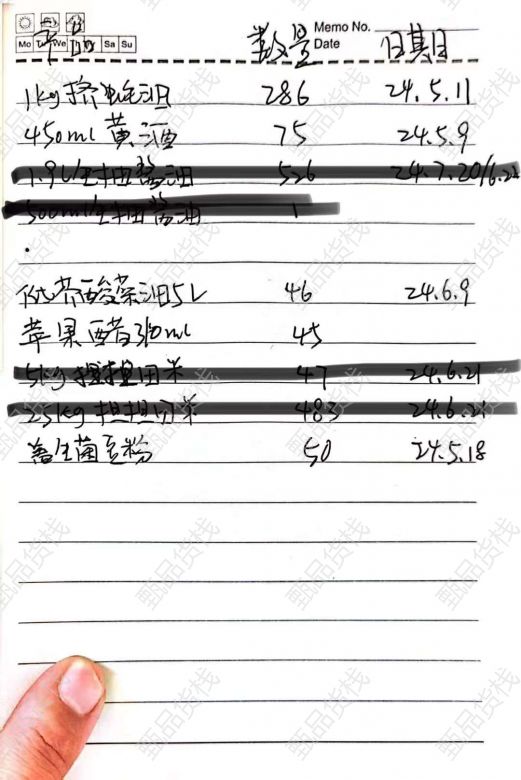 Memo No.
Mo Tu We Sa Su Date
产品 数量 日期
1kg挤蚝油 286 24.5.11
450ml 黄酒 75 24.5.9
1.9L生抽酱油 526 24.7.20/6.22
500ml生抽酱油 1
低芥酸菜油5L 46 24.6.9
苹果醋310ml 45
5kg 担担田米 47 24.6.21
2.5kg 担担田米 483 24.6.21
益生菌豆粉 50 24.5.18
甄品货栈